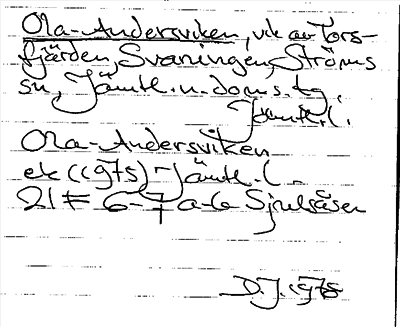 Ola-Andersviken, vik av Tors-
fjärden, Svaningen, Ströms
sn, Jämtl. n. doms. tg,
Jämtl. l.
Ola-Andersviken
ek (1975) - Jämtl. l -
21 F 6-7 a-b Sjulsåsen
D.J. 1978